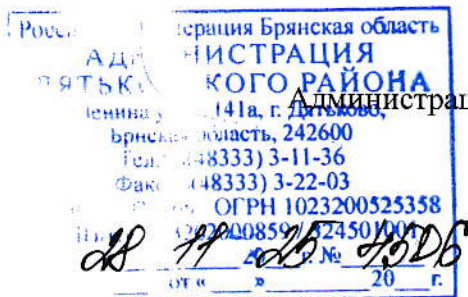 Российская Федерация Брянская область
АДМИНИСТРАЦИЯ
ДЯТЬКОВСКОГО РАЙОНА
Ленина 141а, г. Дятьково,
Администрац
Брянская область, 242600
Тел. (48333) 3-11-36
Факс (48333) 3-22-03
ОГРН 1023200525358
28 11 25 г. №
от « » 20 г.